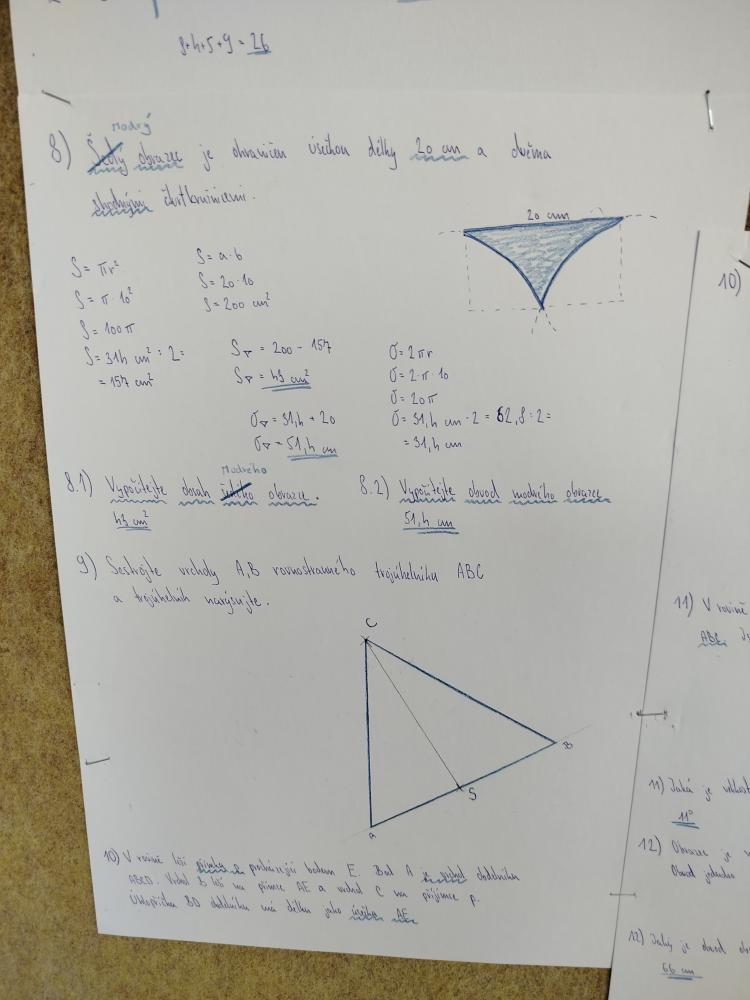 8+4+5+9 = 26
Modrý
8) Šedý obrazec je ohraničen úsečkou délky 20 cm a dvěma
shodnými čtvrtkružnicemi.
20 cm
S = πr²
S = π · 10²
S = 100π
S = 314 cm² : 2 =
= 157 cm²
S = a · b
S = 20 · 10
S = 200 cm²
S▽ = 200 - 157
S▽ = 43 cm²
O▽ = 31,4 + 20
O▽ = 51,4 cm
O = 2πr
O = 2 · π · 10
O = 20π
O = 31,4 cm · 2 = 62,8 : 2 =
= 31,4 cm
Modrého
8.1) Vypočítejte obsah šedého obrazce.
43 cm²
8.2) Vypočítejte obvod modrého obrazce
51,4 cm
9) Sestrojte vrcholy A,B rovnostranného trojúhelníku ABC
a trojúhelník narýsujte.
C
B
S
A
10) V rovině leží přímka p procházející bodem E. Bod A je vrchol obdélníku
ABCD. Vrchol B leží na přímce AE a vrchol C na přímce p.
Úhlopříčka BD obdélníku má délku jako úsečka AE.
10)
11) V rovině
ABC.
11) Jaká je velikost
11°
12) Obrazec je
Obvod jednoho
12) Jaký je obvod
66 cm